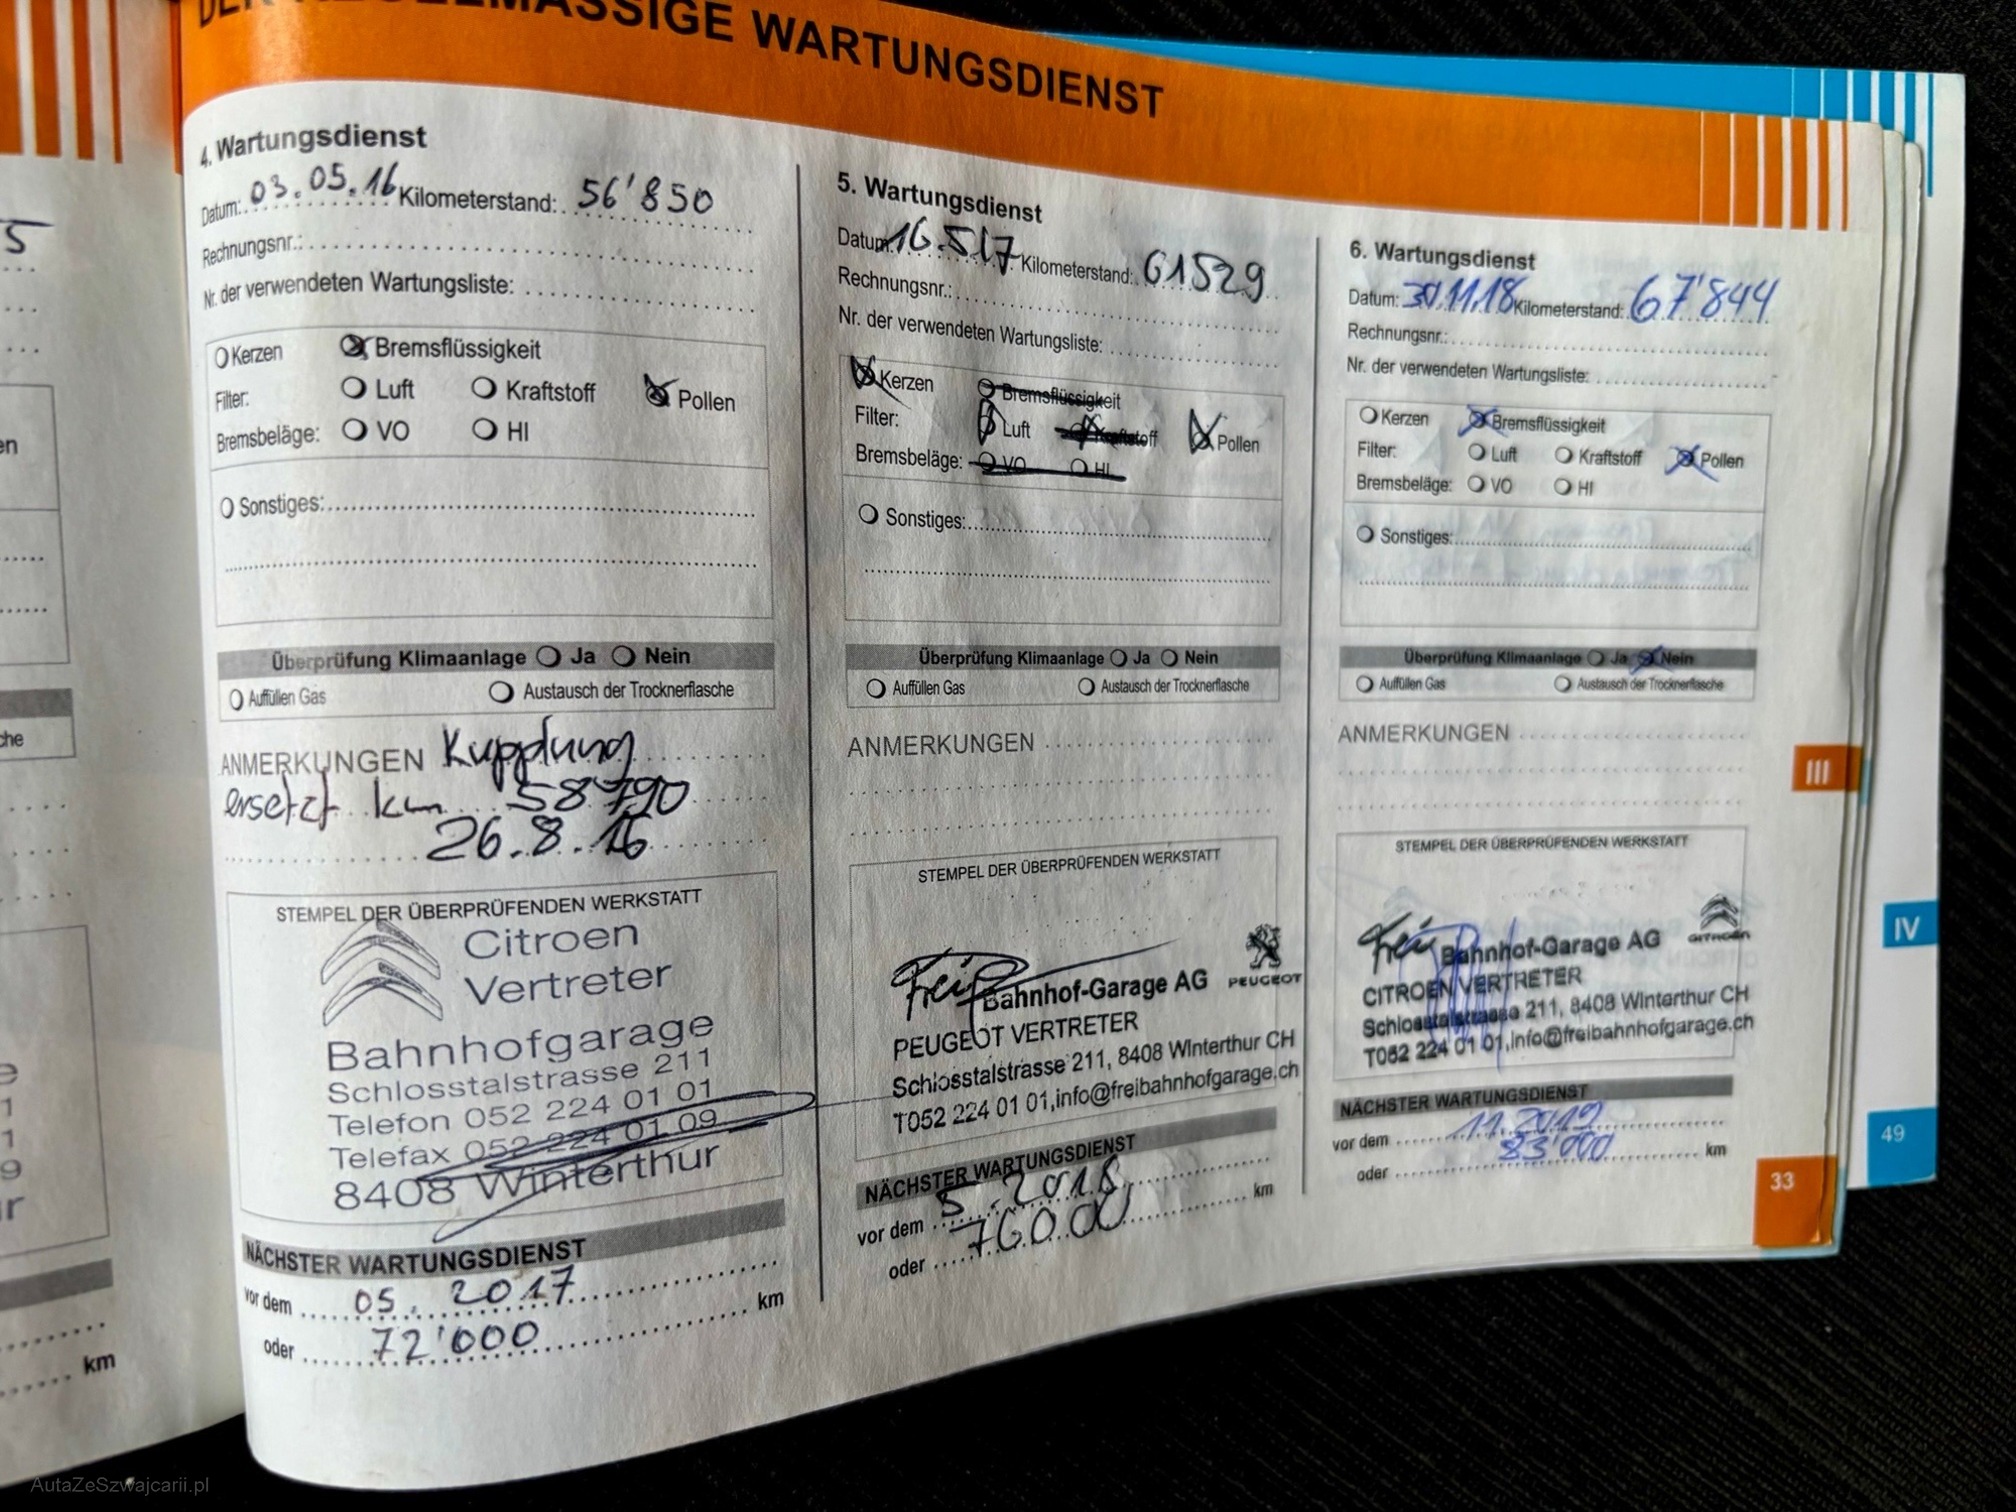 DER REGELMÄSSIGE WARTUNGSDIENST
4. Wartungsdienst
Datum: 03.05.16 Kilometerstand: 56'850
Rechnungsnr.:
Nr. der verwendeten Wartungsliste:
Kerzen Bremsflüssigkeit
Filter: Luft Kraftstoff Pollen
Bremsbeläge: VO HI
Sonstiges:
Überprüfung Klimaanlage Ja Nein
Auffüllen Gas Austausch der Trocknerflasche
ANMERKUNGEN Kupplung
ersetzt km 58'790
26.8.16
STEMPEL DER ÜBERPRÜFENDEN WERKSTATT
Citroen
Vertreter
Bahnhofgarage
Schlosstalstrasse 211
Telefon 052 224 01 01
Telefax 052 224 01 09
8408 Winterthur
NÄCHSTER WARTUNGSDIENST
vor dem 05. 2017
oder 72'000 km
5. Wartungsdienst
Datum: 16.5.17 Kilometerstand: 61529
Rechnungsnr.:
Nr. der verwendeten Wartungsliste:
Kerzen Bremsflüssigkeit
Filter: Luft Kraftstoff Pollen
Bremsbeläge: VO HI
Sonstiges:
Überprüfung Klimaanlage Ja Nein
Auffüllen Gas Austausch der Trocknerflasche
ANMERKUNGEN
STEMPEL DER ÜBERPRÜFENDEN WERKSTATT
Frei Bahnhof-Garage AG PEUGEOT
PEUGEOT VERTRETER
Schlosstalstrasse 211, 8408 Winterthur CH
T052 224 01 01,info@freibahnhofgarage.ch
NÄCHSTER WARTUNGSDIENST
vor dem 5. 2018
oder 76000 km
6. Wartungsdienst
Datum: 30.11.18 Kilometerstand: 67'844
Rechnungsnr.:
Nr. der verwendeten Wartungsliste:
Kerzen Bremsflüssigkeit
Filter: Luft Kraftstoff Pollen
Bremsbeläge: VO HI
Sonstiges:
Überprüfung Klimaanlage Ja Nein
Auffüllen Gas Austausch der Trocknerflasche
ANMERKUNGEN
STEMPEL DER ÜBERPRÜFENDEN WERKSTATT
Frei Bahnhof-Garage AG CITROËN
CITROEN VERTRETER
Schlosstalstrasse 211, 8408 Winterthur CH
T052 224 01 01,info@freibahnhofgarage.ch
NÄCHSTER WARTUNGSDIENST
vor dem 11.2019
oder 83'000 km
III
33
IV
49
5
km
AutaZeSzwajcarii.pl